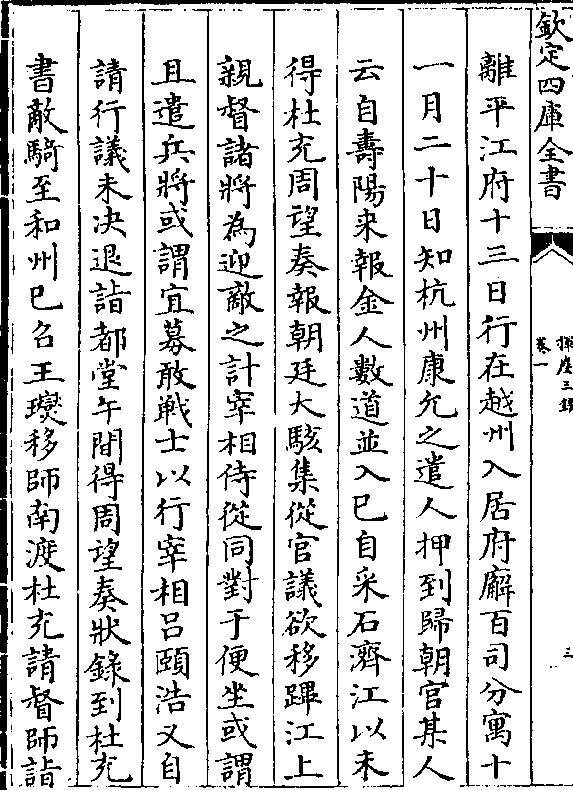 欽定四庫全書
揮麈三錄
卷一
三
離平江府十三日行在越州入居府廨百司分寓十
一月二十日知杭州康允之遣人押到歸朝官某人
云自壽陽來報金人數道並入已自采石濟江以未
得杜充周望奏報朝廷大駭集從官議欲移蹕江上
親督諸將為迎敵之計宰相侍從同對于便坐或謂
且遣兵將或謂宜募敢戰士以行宰相呂頤浩又自
請行議未决退詣都堂午間得周望奏狀錄到杜充
書敵騎至和州已召王𤫉移師南渡杜充請督師詣